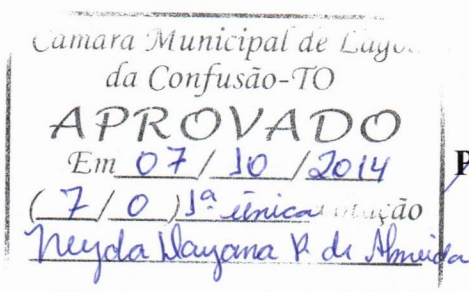 Câmara Municipal de Lago
da Confusão-TO
APROVADO
Em 07 / 10 / 2014
( 7 / 0 ) 1ª única votação
Neyda Dayana R de Almeida
P